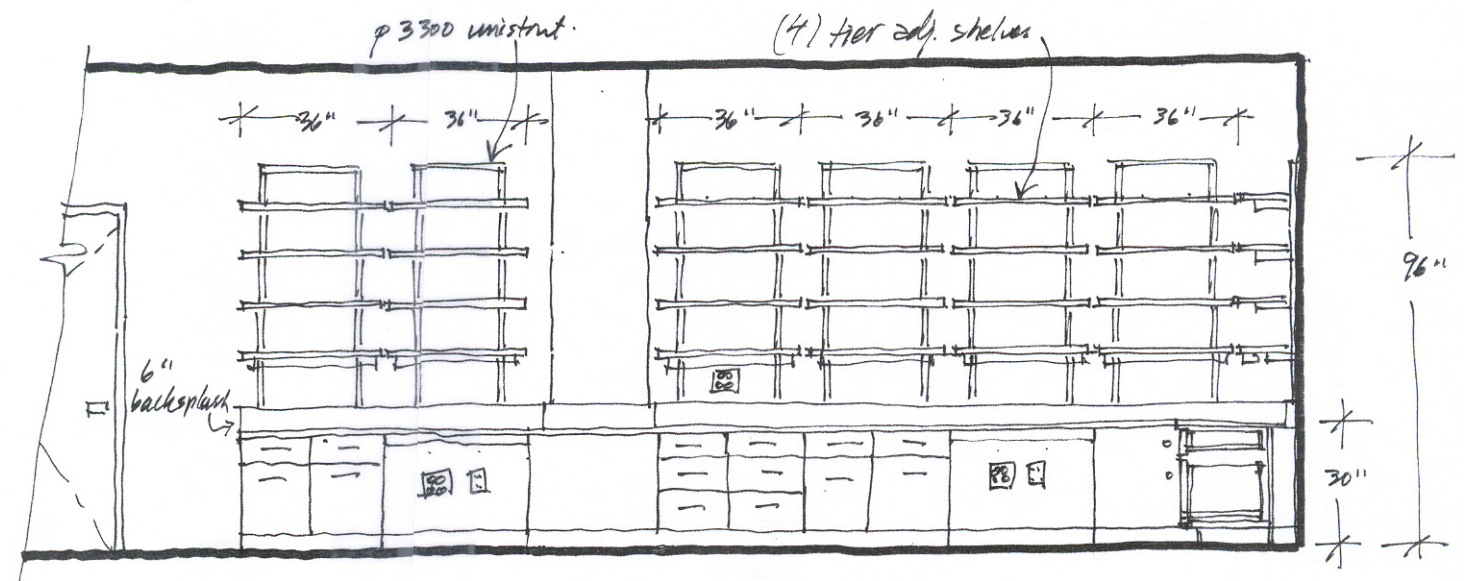 p 3300 unistrut.
(4) tier adj. shelves
36" 36" 36" 36" 36" 36"
96"
6"
backsplash
30"